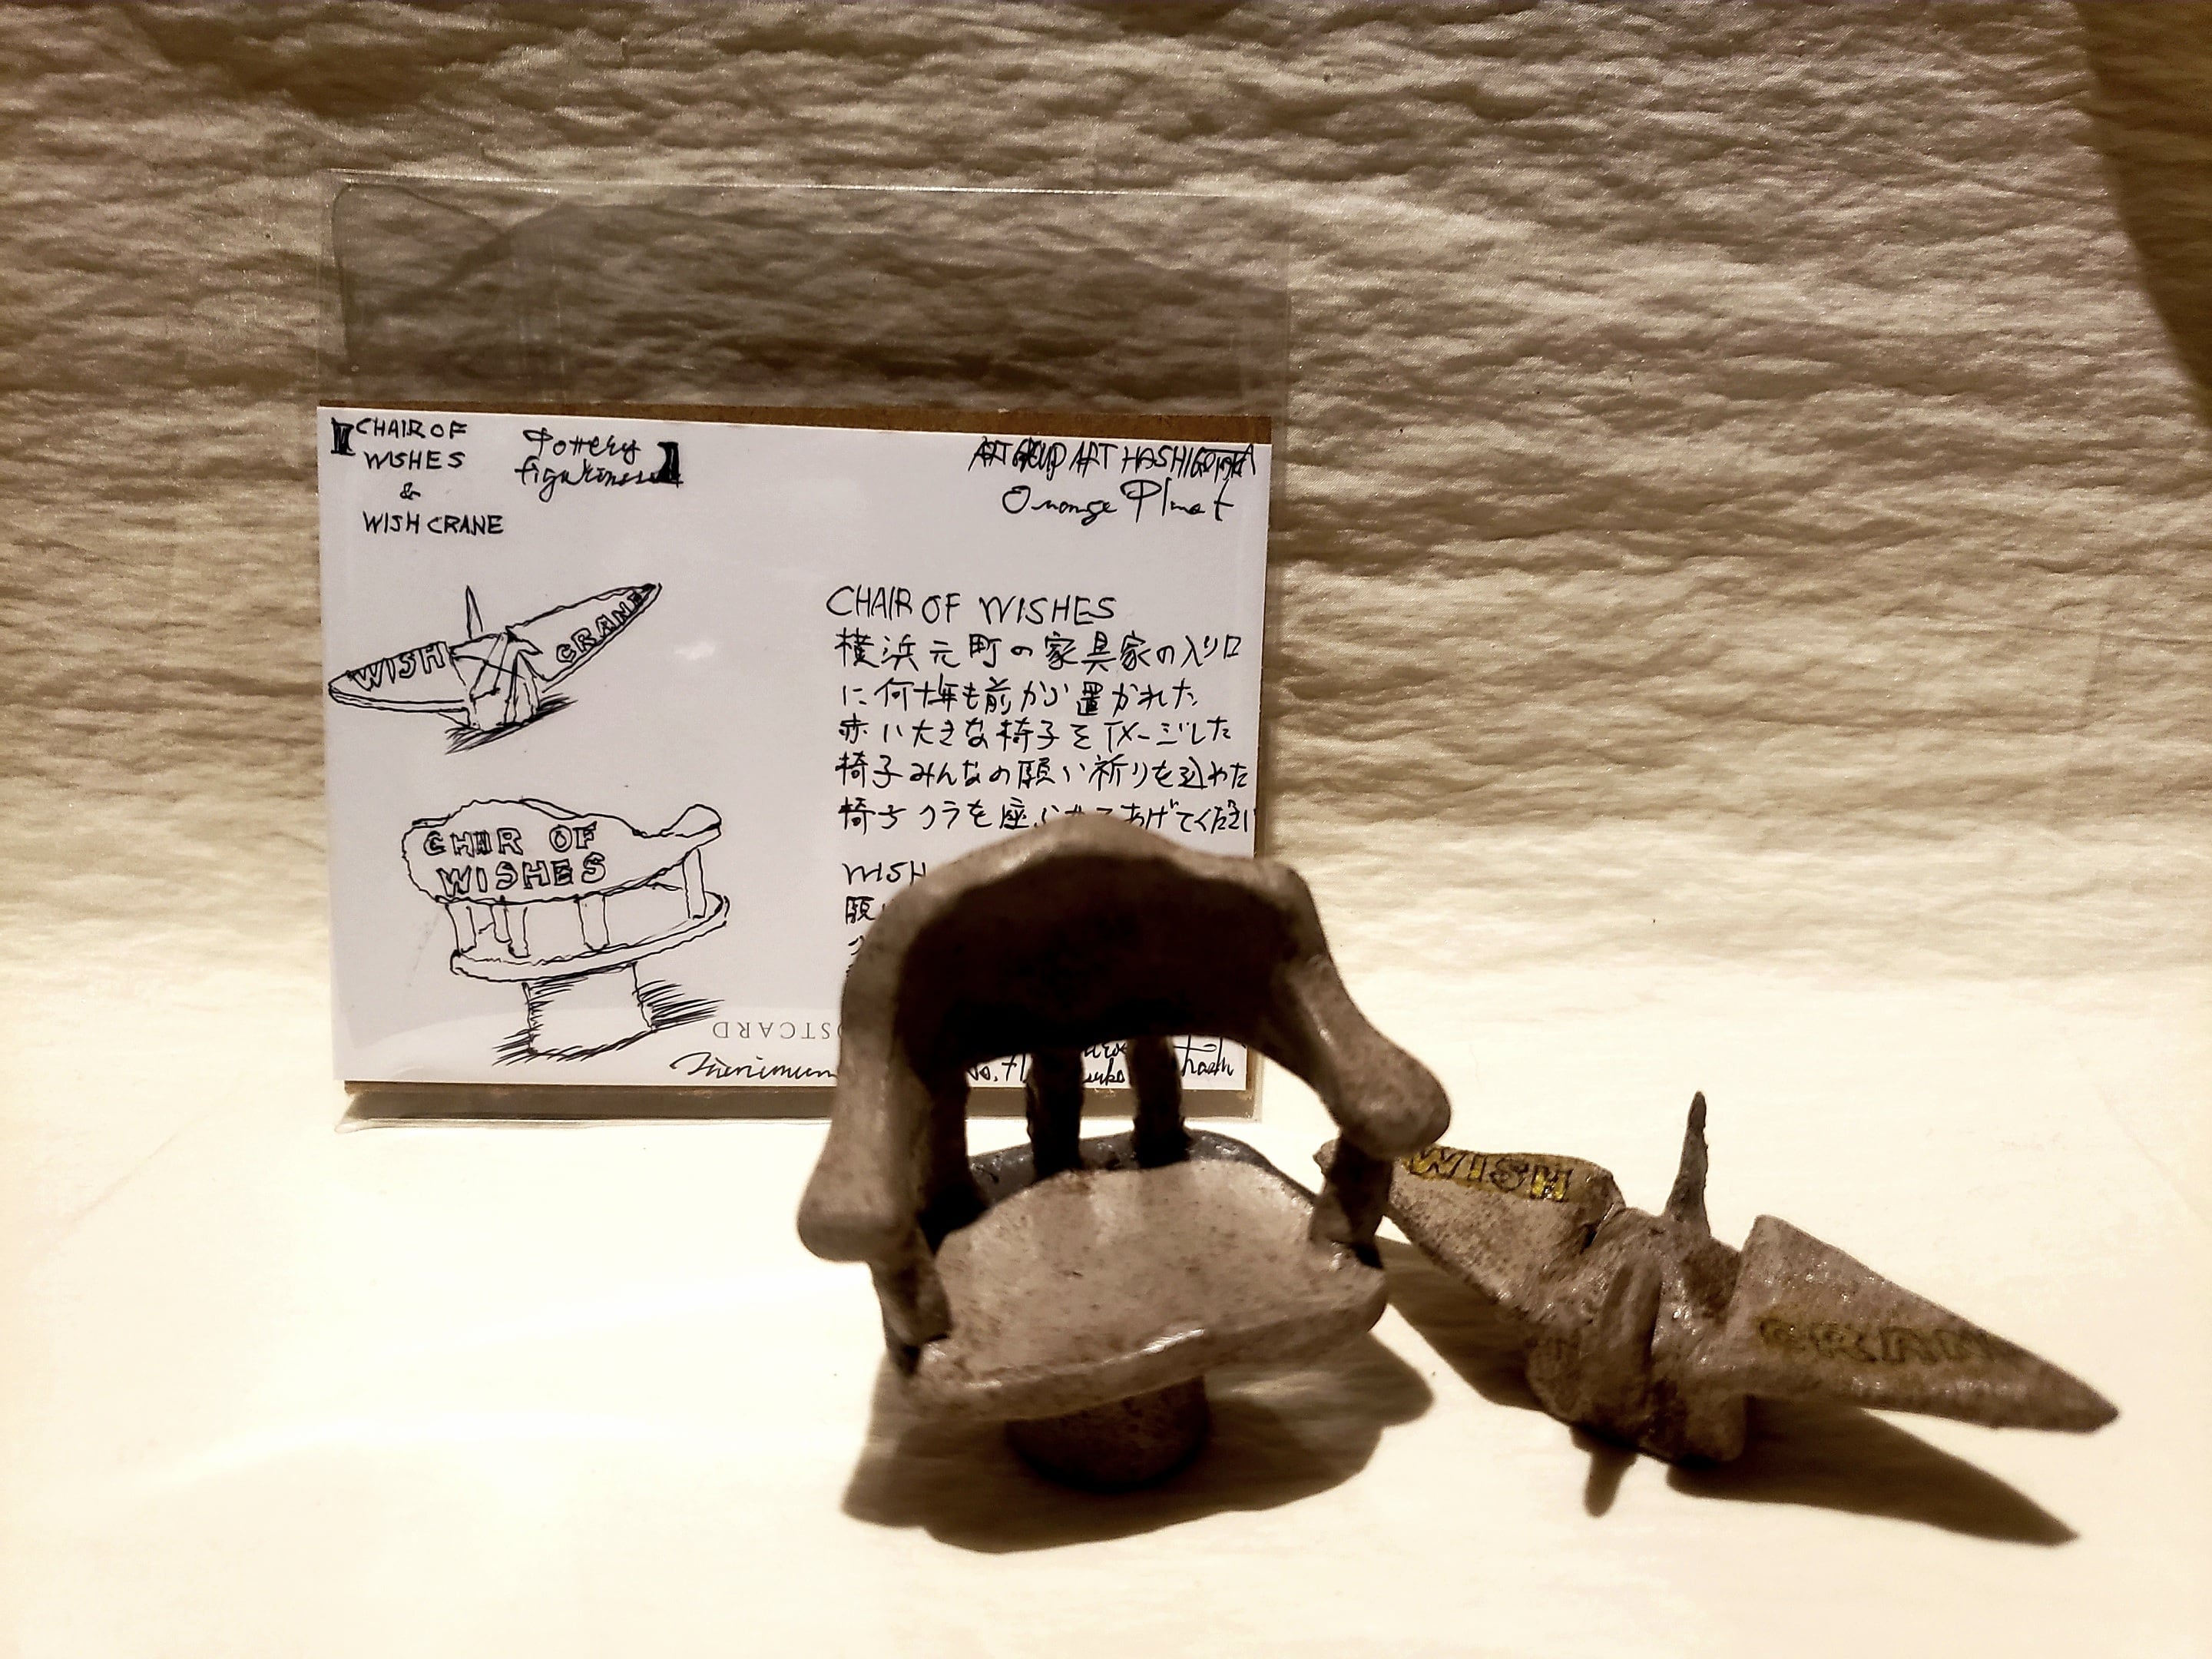 【CHAIR OF
WISHES
&
WISH CRANE
Pottery
figurines】
ART GROUP ART HASHIGOTAKA
Orange Planet
WISH CRANE
CHAIR OF
WISHES
CHAIR OF WISHES
横浜元町の家具家の入り口
に何十年も前から置かれた
赤い大きな椅子をイメージした
椅子みんなの願い祈りを込めた
椅子 クラを座らせてあげてください
WISH
願い
POSTCARD
WISH
CRAN